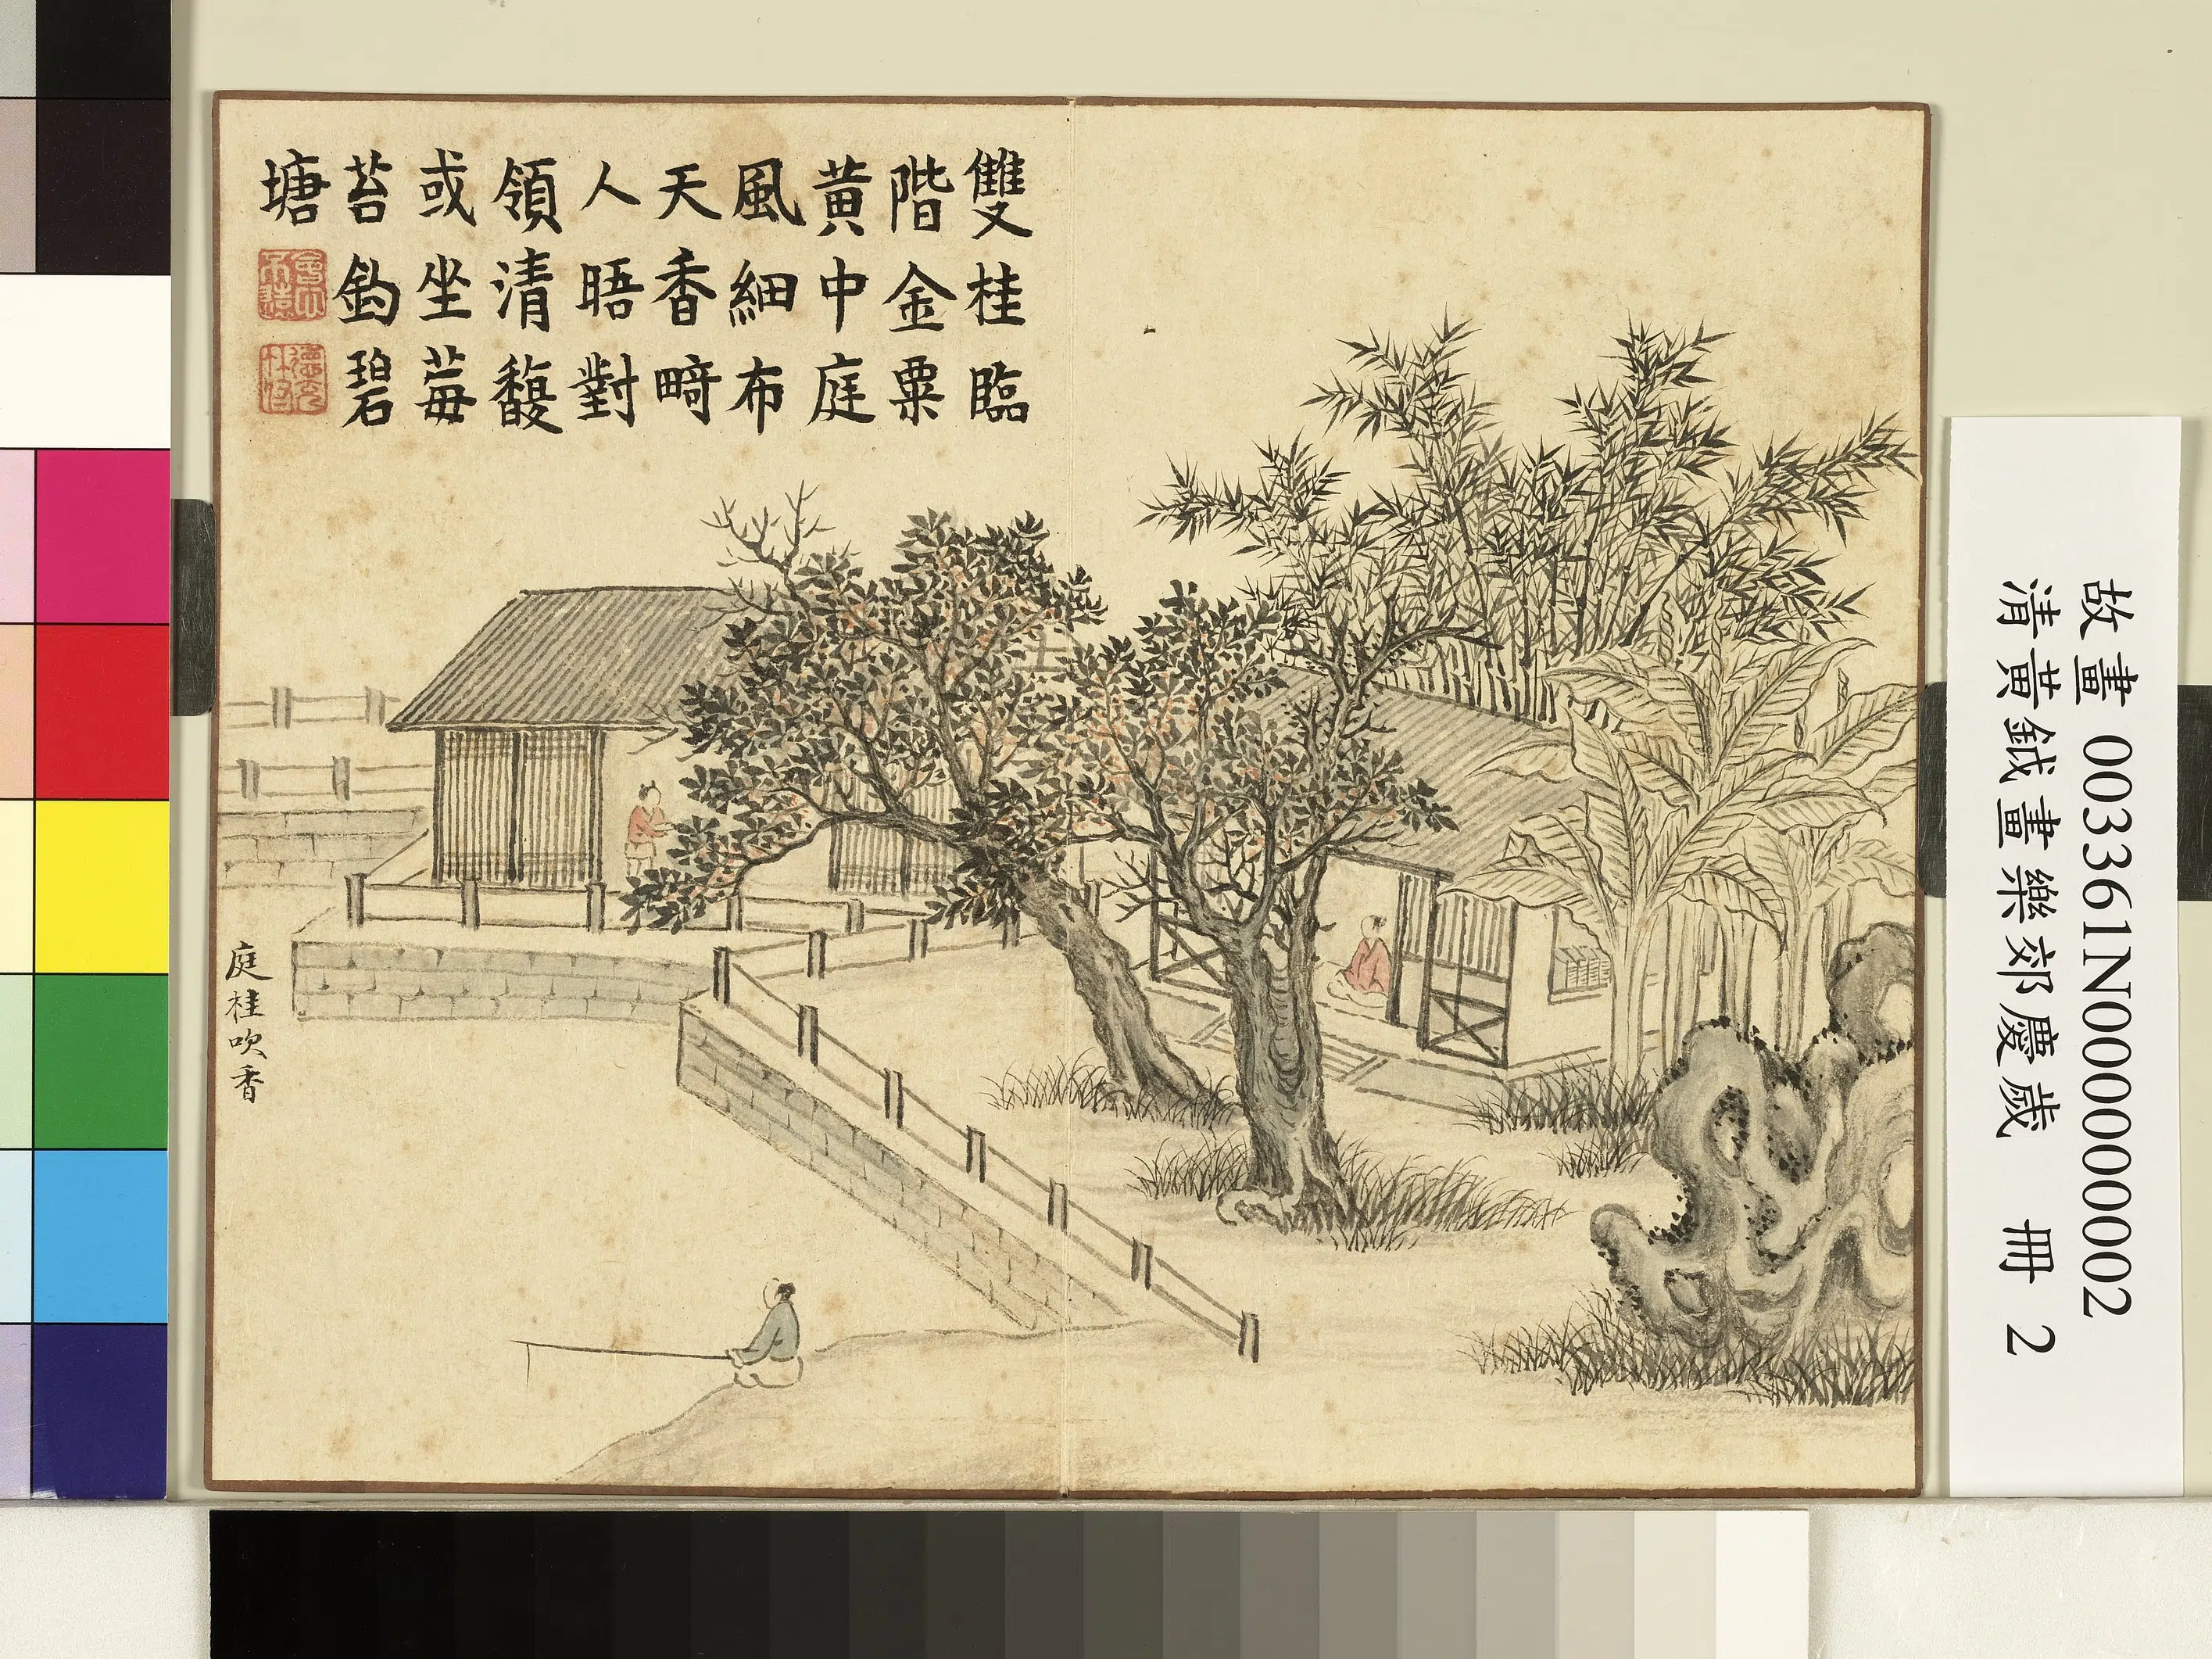 雙桂臨
階金粟
黃中庭
風細布
天香畸
人晤對
領清馥
或坐莓
苔釣碧
塘
庭桂吹香
故畫 003361N000000002
清黃鉞畫樂郊慶歲 冊 2